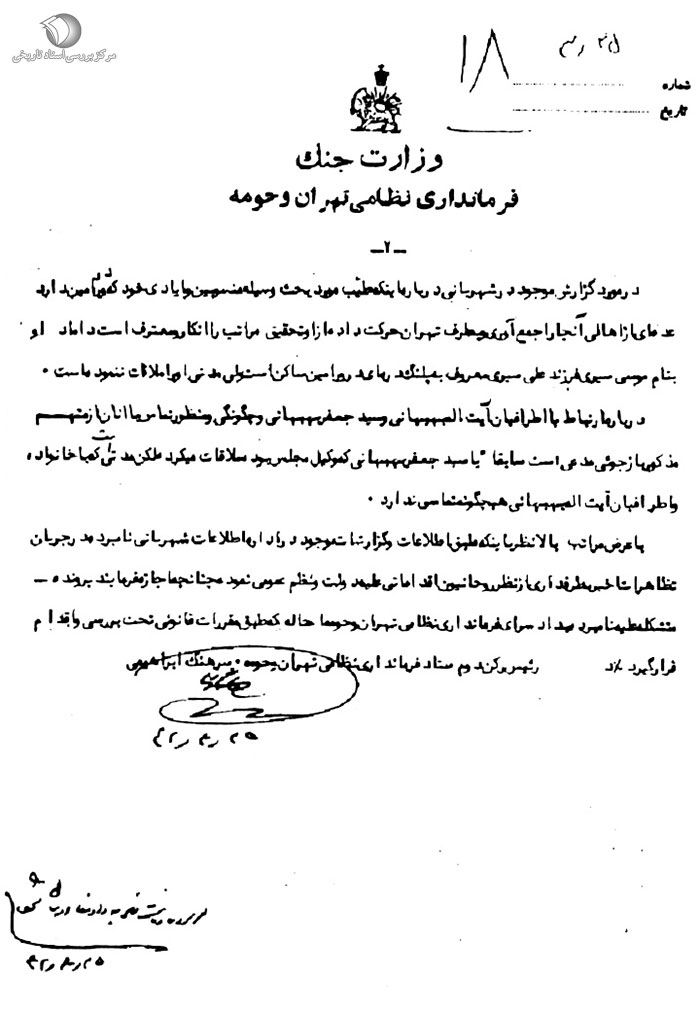 مرکز بررسی اسناد تاریخی
۱۸
شماره
تاریخ
وزارت جنگ
فرمانداری نظامی تهران و حومه
ـ۲ـ
در مورد گزارش موجود در شهربانی درباره اینکه طیب مورد بحث وسیله منسوبین و ایادی خود که در ورامین دارد
عده‌ای از اهالی آنجا را جمع‌آوری و بطرف تهران حرکت داده از او تحقیق مراتب را انکار و معترف است داماد او
بنام موسی سیری فرزند علی سیری معروف به پلنگ در ورامین ساکن است ولی مدتی او را ملاقات ننموده است ۰
درباره ارتباط با اطرافیان آیت اله بهبهانی و سید جعفر بهبهانی و چگونگی و منظور تماس با آنان از متهم
مذکور بازجوئی مدعی است سابقا با سید جعفر بهبهانی که وکیل مجلس بود ملاقات میکرد لکن مدتی است که با خانواده
و اطرافیان آیت اله بهبهانی هیچگونه تماسی ندارد ۰
با عرض مراتب بالا نظر باینکه طبق اطلاعات و گزارشات موجود در اداره اطلاعات شهربانی نامبرده در جریان
تظاهرات اخیر به طرفداری از نظر روحانیون اقداماتی علیه دولت و نظم عمومی نموده چنانچه اجازه فرمایند پرونده ـ
متشکله علیه نامبرده به دادسرای فرمانداری نظامی تهران و حومه احاله که طبق مقررات قانونی تحت بررسی و اقدام
قرار گیرد
رئیس رکن دوم ستاد فرمانداری نظامی تهران و حومه ۰ سرهنگ ابراهیمی
۴۲٫۴٫۲۵